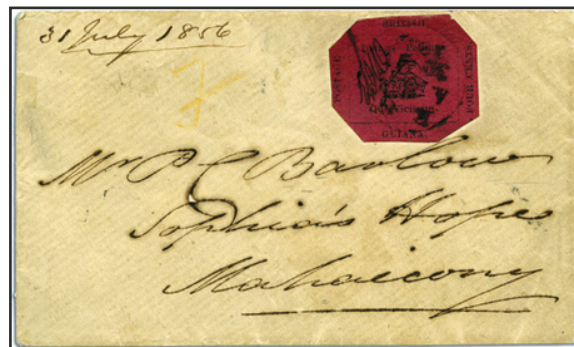 31 July 1856
BRITISH
POSTAGE
FOUR CENTS
GUIANA.
Mr P C Barlow
Sophia's Hope
Mahaicony